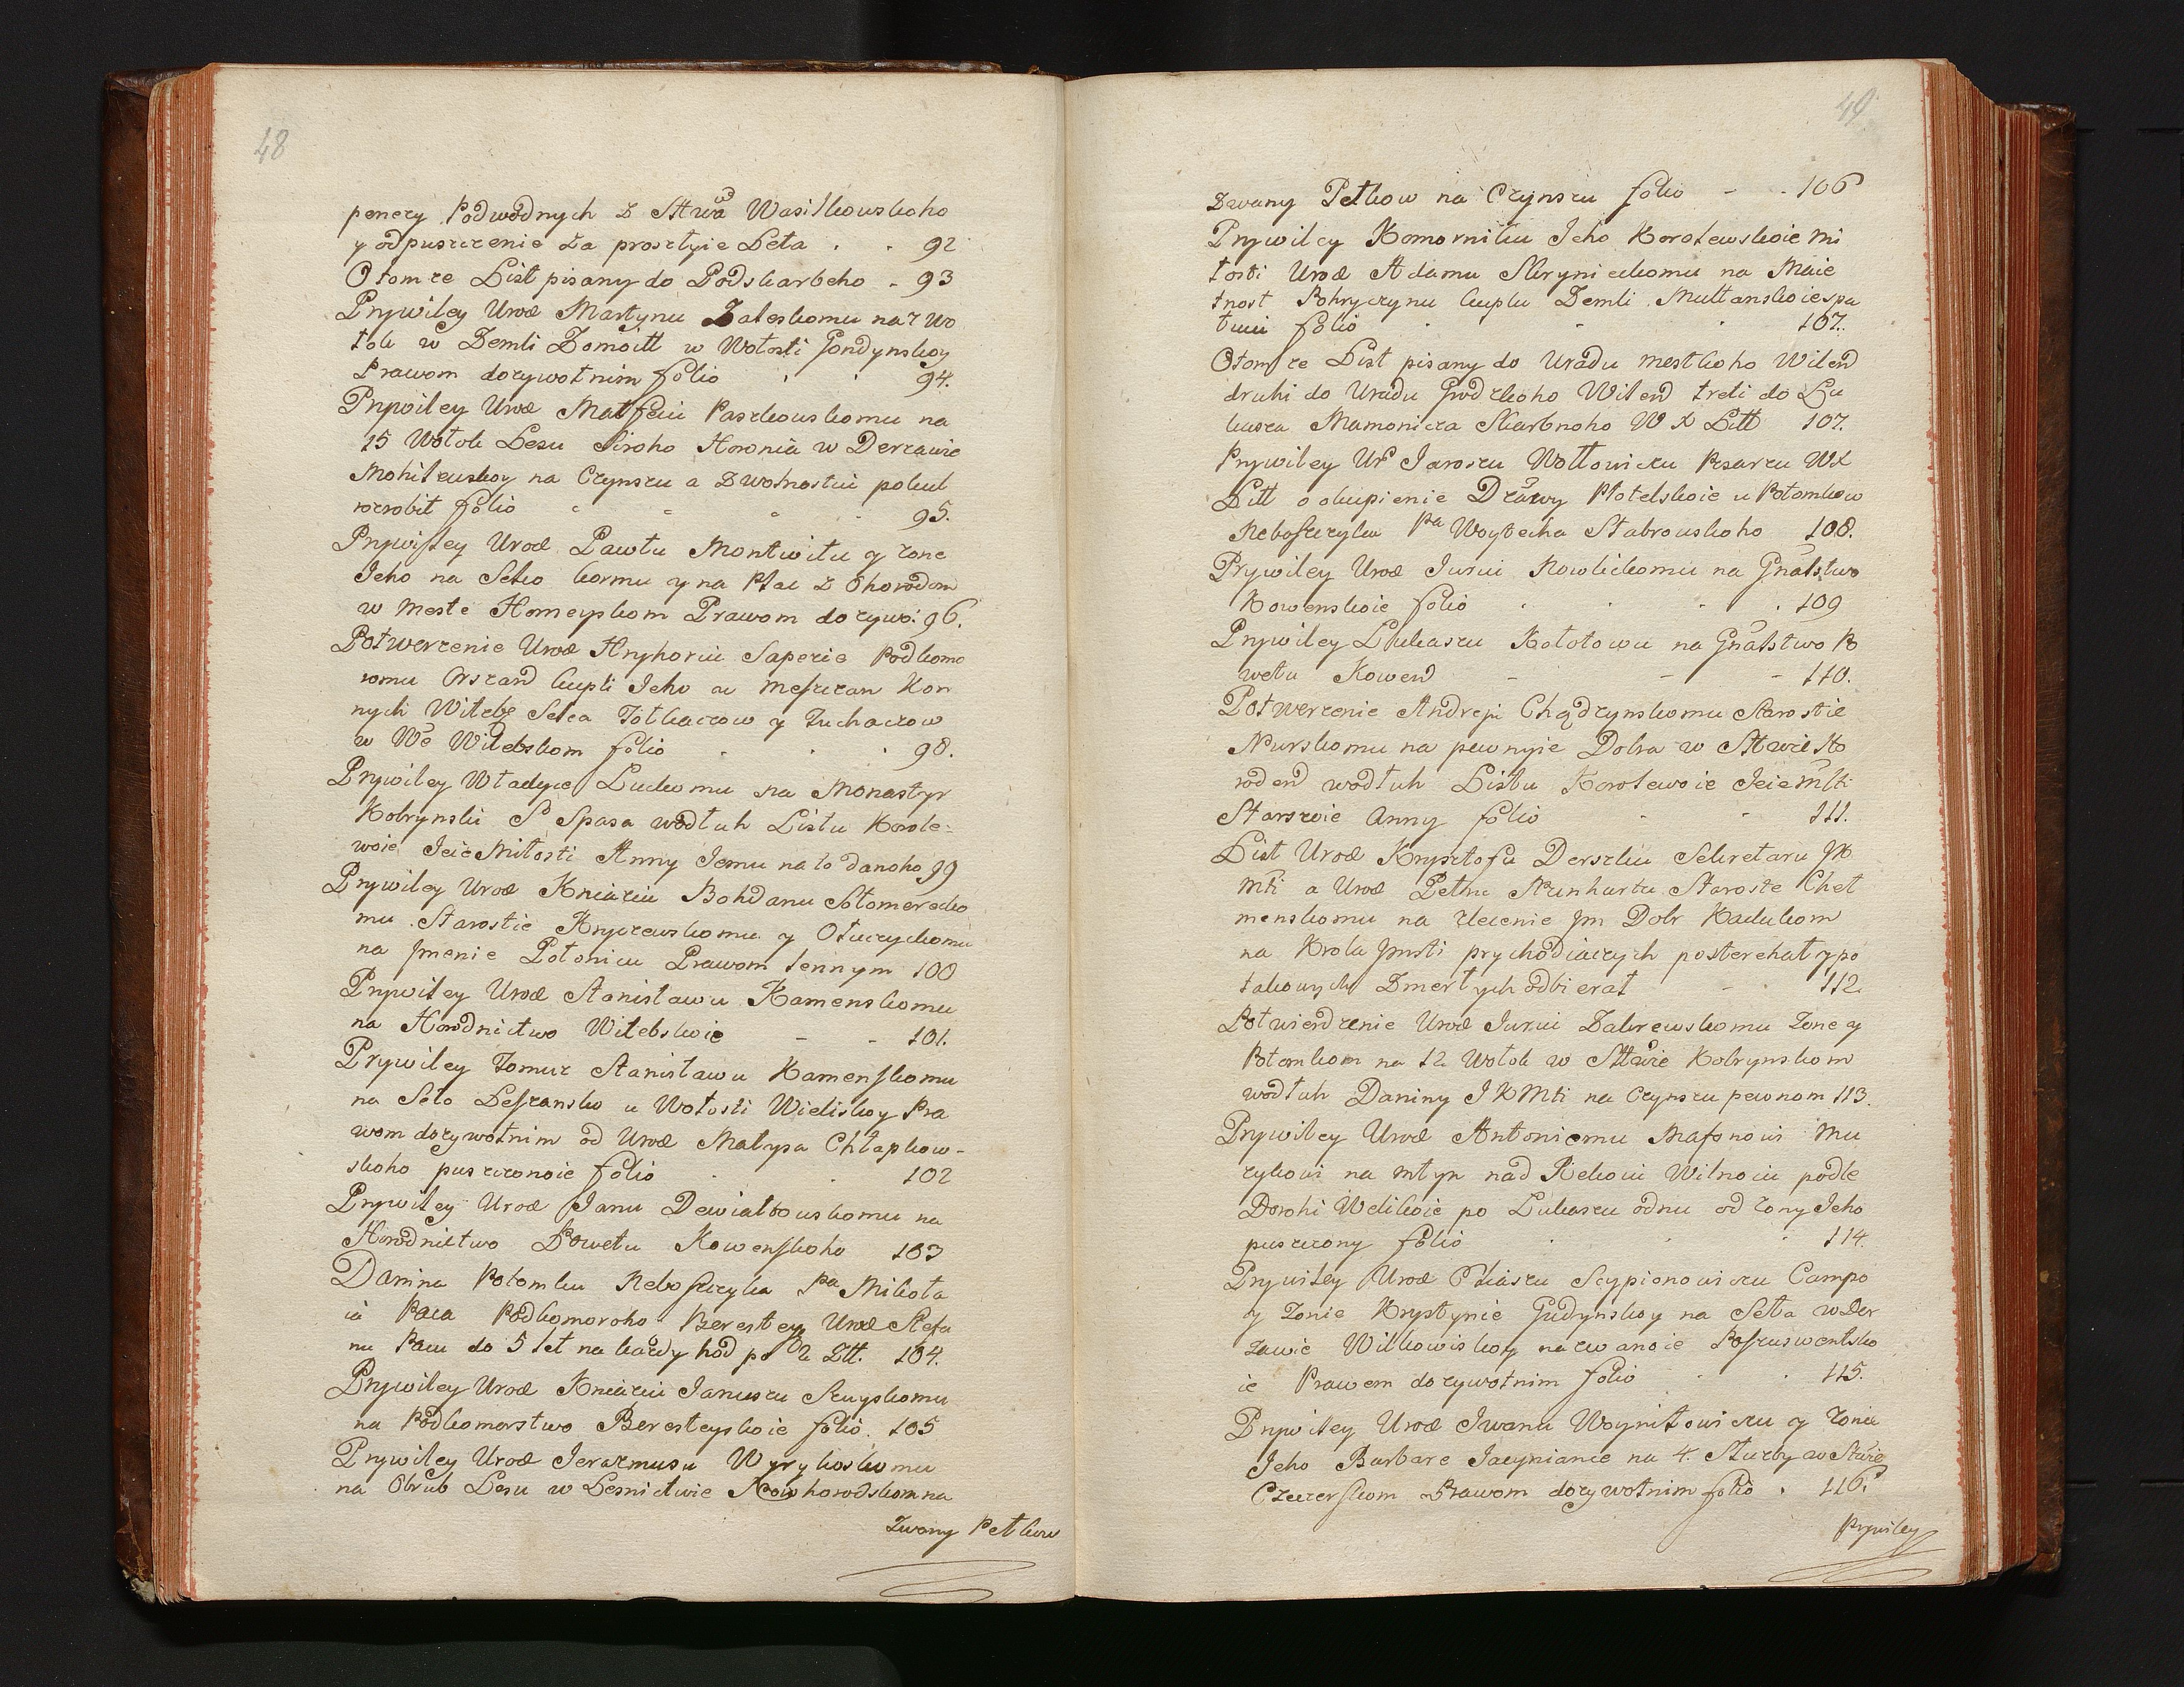 48
penezy Podwodnych z Sttwa Wasilkowskoho
y odpuszczenie za proszłyie Leta . . 92
O tom ze List pisany do Podskarbeho . 93
Prywiley Urod Martynu Zaleskomu na 7 Wo
łok w Zemli Zomoitt w Wołosti Gondynskoy
Prawom dozywotnim folio . . 94.
Prywiley Urod Matfeiu Paszkouskomu na
15 Wołok Lesu Siroho Horonia w Derzawie
Mohilewskoy na Czynszu a z Wolnostiu pokul
rozrobit folio 95.
Prywiley Urod Pawłu Montwiłu y zone
Jeho na Seło Kormu y na Plac z Ohorodom
w meste Homeyskom Prawom dozywo: 96.
Potwerzenie Urod Hryhoriu Sapezie Podkomo
romu Orszand kupli Jeho au meszczan Kon
nych Witebs Selca Tołkaczow y Zuchaczow
w We Witebskom folio . . . 98.
Prywiley Władyce Luckomu na Monastyr
Kobrynski S Spasa wodłuh Listu Korole-
woie Jeie Miłosti Anny Jemu na to danoho 99
Prywiley Urod Kniaziu Bohdanu Sołomerecko
mu Starostie Kryczewskomu y Ołuczyckomu
na Jmenie Połonicu Prawom lennym 100
Prywiley Urod Stanisławu Kamenskomu
na Horodnictwo Witebskoie - - 101.
Prywiley Tomuz Stanisławu Kamenskomu
na Seło Leszansko u Wołosti Wieliskoy Pra
wom dozywotnim od Urod Matysa Chłapkow-
skoho puszczonoie folio . . 102
Prywiley Urod Janu Dewiałtouskomu na
Horodnictwo Powetu Kowenskoho 103
Danina Potomku Neboszczyka Pa Mikoła
ia Paca Podkomoroho Berestey Urod Stefa
nu Pacu do 5 let na kazdy hod po Zlt. 104.
Prywiley Urod Kniaziu Januszu Szuyskomu
na Podkomorstwo Beresteyskoie folio. 105
Prywiley Urod Jerazmusu Wyrykoskomu
na Obrub Lesu w Lesnictwie Nowhorodskom na
Zwany Petkow
49
Zwany Petkow na Czynszu folio - - 106
Prywiley Komorniku Jeho Korolewskoie Mi
łosti Urod Adamu Skryneckomu na Maie
tnost Pohryczynu kuplu Zemli Multanskoie spa
tuiu folio 107.
O tom ze List pisany do Uradu mestkoho Wilend
druhi do Uradu Grodzkoho Wilend treti do Lu
kasza Mamonicza Skarbnoho W X Litt 107.
Prywiley Ur Jaroszu Wołłowiczu Pisarzu WX
Litt o okupienie Drawy Płotelskoie u Potomkow
Neboszczyka Pa Woytecha Stabrouskoho 108.
Prywiley Urod Juriu Kowlickomu na Gnalstwo
Kowenskoie folio . . . . 109
Prywiley Lukaszu Kołotowu na Gnalstwo Po
wetu Kowend - - - 110.
Potwerzenie Andreju Chądzynskomu Starostie
Nurskomu na pewnyie Dobra w Sttwie Ho
rodend wodłuh Listu Korolewoie Jeie Młti
Starszoie Anny folio - - 111.
List Urod Krysztofu Derszku Sekretaru JK
Mti a Urod Petru Nunhartu Staroste Chel
menskomu na zlecenie Jm Dobr Kadukom
na Krola Jmsti prychodiaczych posterehat y po
takowych Zmerłych odbierat - - 112.
Potwierdzenie Urod Juriu Zakrewskomu zone y
Potomkom na 12 Wołok w Sttwie Kobrynskom
wodłuh Daniny J K Mti na Czynszu pewnom 113.
Prywiley Urod Antoniemu Mafonowi Mu
zykowi na młyn nad Rekoiu Wilnoiu podle
Dorohi Welikoie po Lukaszu odnu od zony Jeho
puszczony folio . . . 114.
Prywiley Urod Eliaszu Scypionowiczu Campo
y Zonie Krystynie Gudynskoy na Seła w Der
zawie Wilkowiskoy nazwanoie Poszuswentsko
ie Prawem dozywotnim folio . . 115.
Prywiley Urod Jwanu Woyniłowiczu y zonie
Jeho Barbare Jacyniance na 4. Słuzby w Sttwie
Czeczerskom Prawom dozywotnim folio . 116.
Prywiley